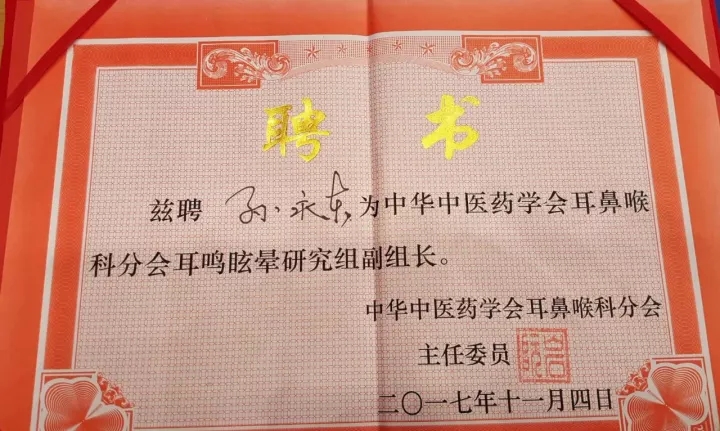 聘书
兹聘 孙永东 为中华中医药学会耳鼻喉
科分会耳鸣眩晕研究组副组长。
中华中医药学会耳鼻喉科分会
主任委员
二〇一七年十一月四日